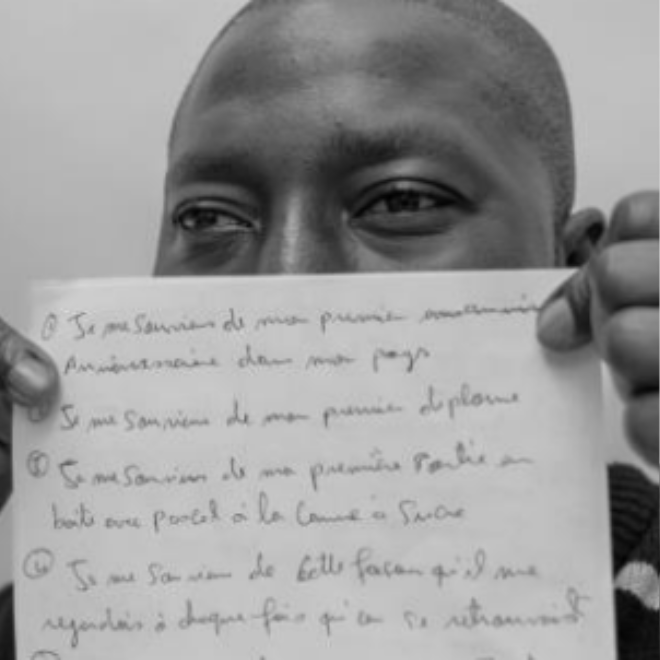 ① Je me souviens de mon premier
Anniversaire dans mon pays
Je me souviens de mon premier diplome
③ Je me souviens de ma première sortie en
boite avec pascal à la Canne à Sucre
④ Je me souviens de cette façon qu'il me
regardais à chaque fois qu'on se retrouvait